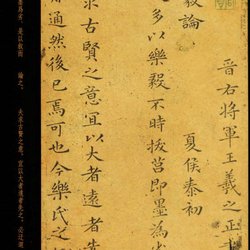 晉右將軍王羲之正書
夏侯泰初
毅論
多以樂毅不時拔莒即墨為
求古賢之意宜以大者遠者先
通然後已焉可也今樂氏之
論之。
夫求古賢之意,宜以大者遠者先之,必迂迴
為劣,是以敘而